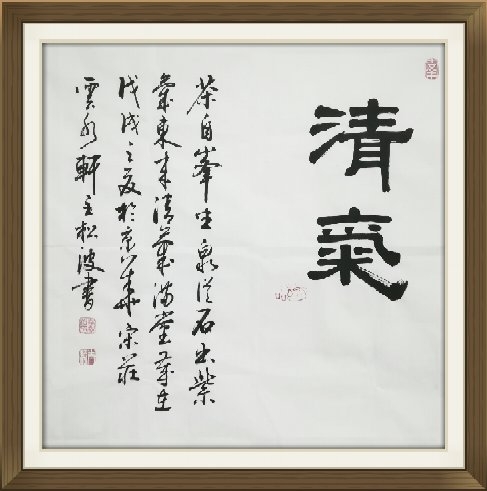 清氣
茶自峯生泉從石出紫
氣東來清氣滿堂歲在
戊戌之夏於京華宋莊
雲水軒主松波書